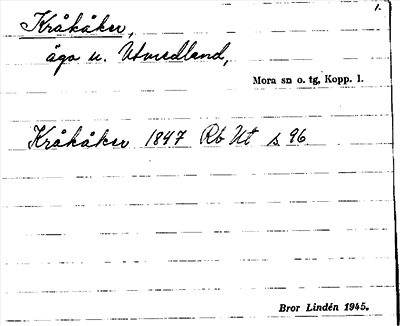 1.
Kråkåker,
ägo u. Utmedland,
Mora sn o. tg, Kopp. l.
Kråkåker 1847 Rb Ut s. 96
Bror Lindén 1945.